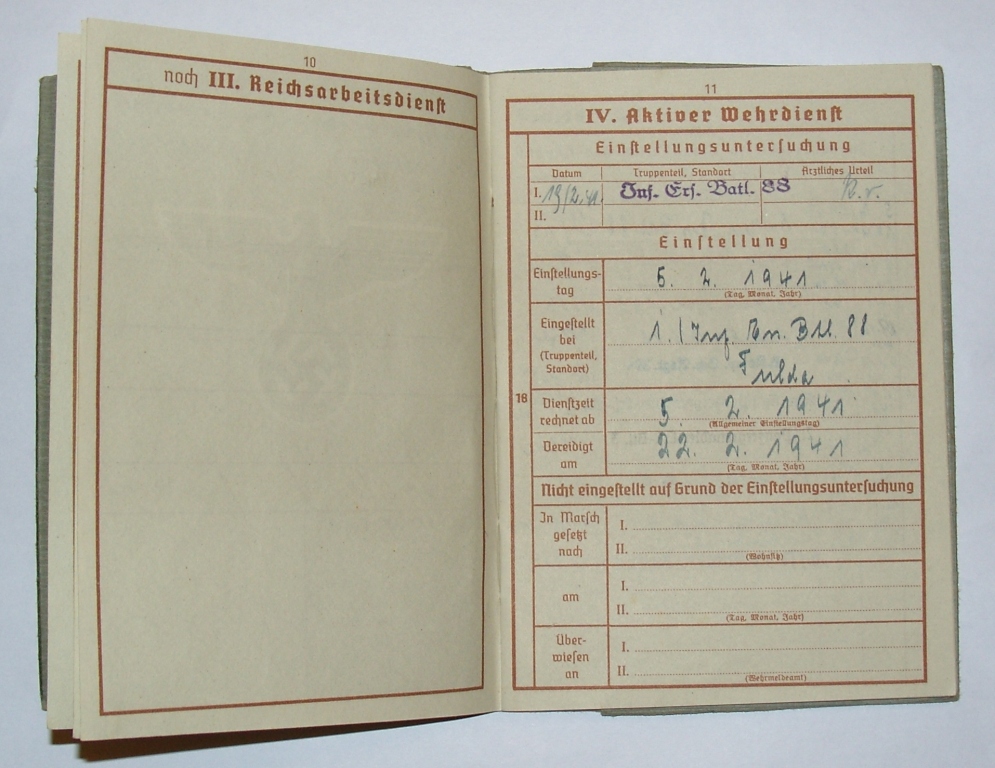 10
noch III. Reichsarbeitsdienst
11
IV. Aktiver Wehrdienst
Einstellungsuntersuchung
Datum Truppenteil, Standort Ärztliches Urteil
I. 19/2.41. Inf. Ers. Batl. 88 k.v.
II.
Einstellung
Einstellungs-
tag
5. 2. 1941
(Tag, Monat, Jahr)
Eingestellt
bei
(Truppenteil,
Standort)
1./Inf. Ers. Btl. 88
Fulda
18
Dienstzeit
rechnet ab
5. 2. 1941
(Allgemeiner Einstellungstag)
Vereidigt
am
22. 2. 1941
(Tag, Monat, Jahr)
Nicht eingestellt auf Grund der Einstellungsuntersuchung
In Marsch
gesetzt
nach
I.
II.
(Wohnsitz)
am
I.
II.
(Tag, Monat, Jahr)
Über-
wiesen
an
I.
II.
(Wehrmeldeamt)